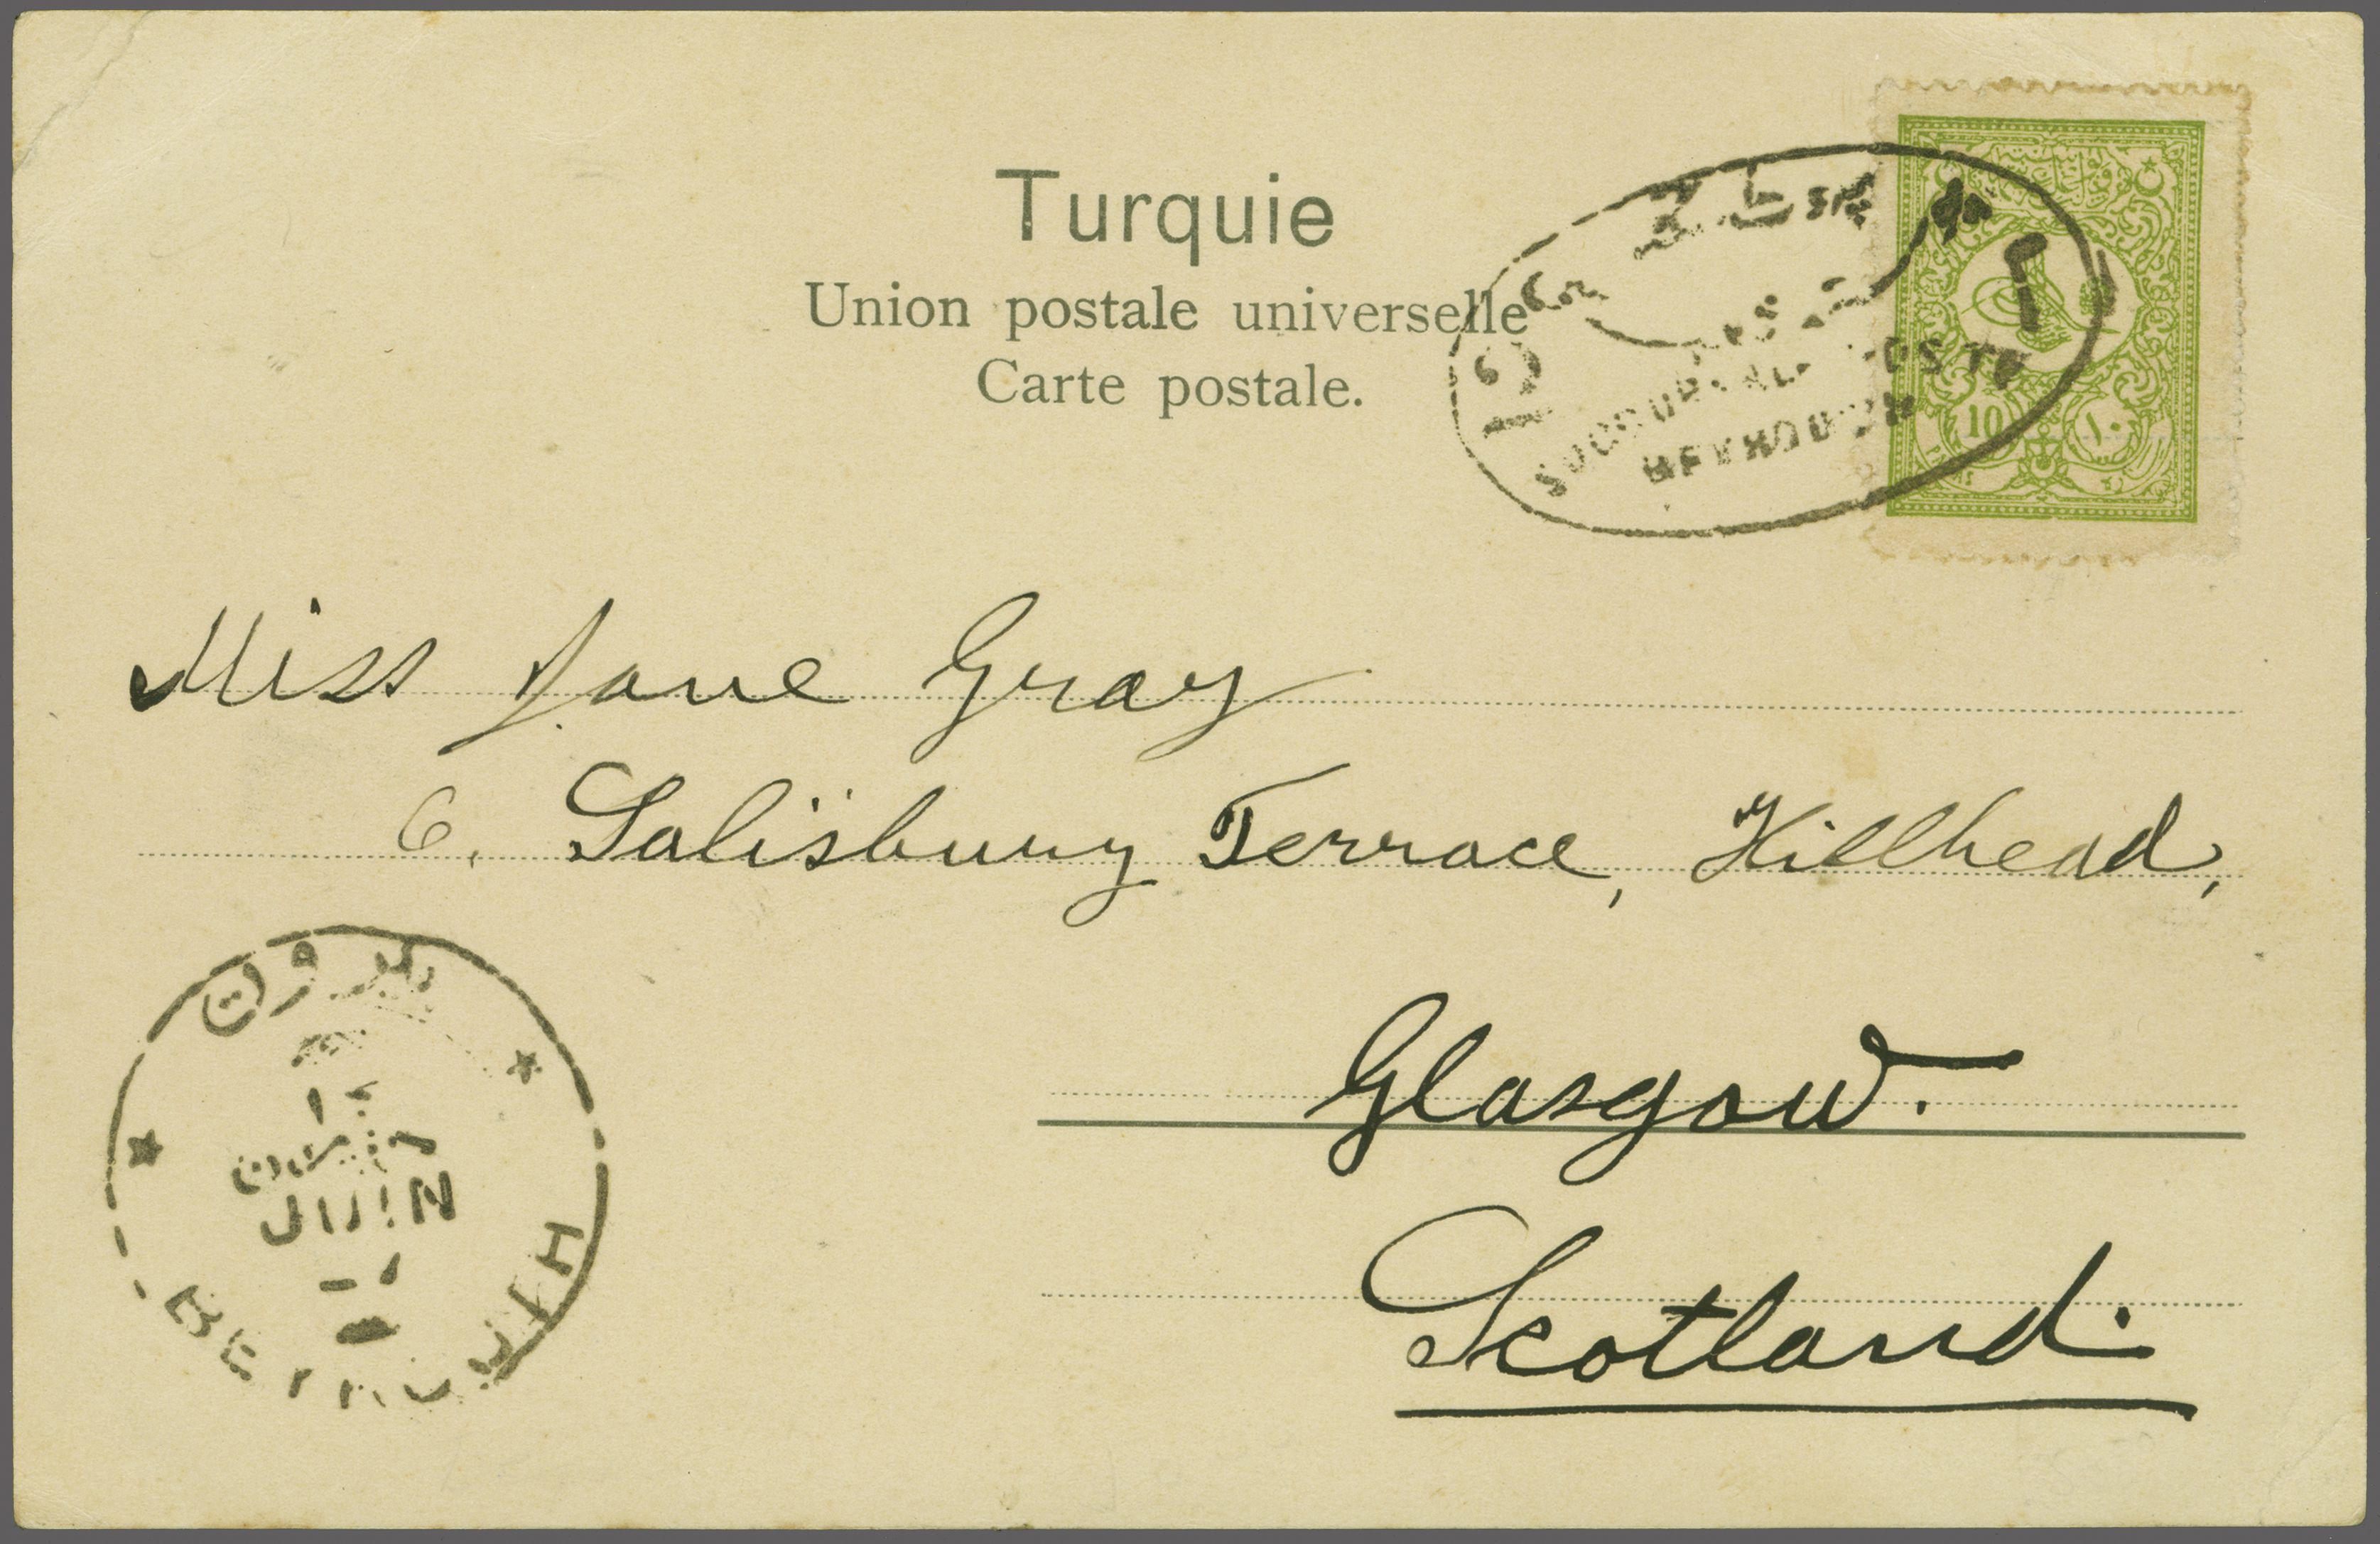 Turquie
Union postale universelle
Carte postale.
SUCCURSALE POSTE
BEYROUTH
10
١٠
Miss Jane Gray
6. Salisbury Terrace, Hillhead,
Glasgow.
Scotland.
بيروت
JUIN
BEYROUTH